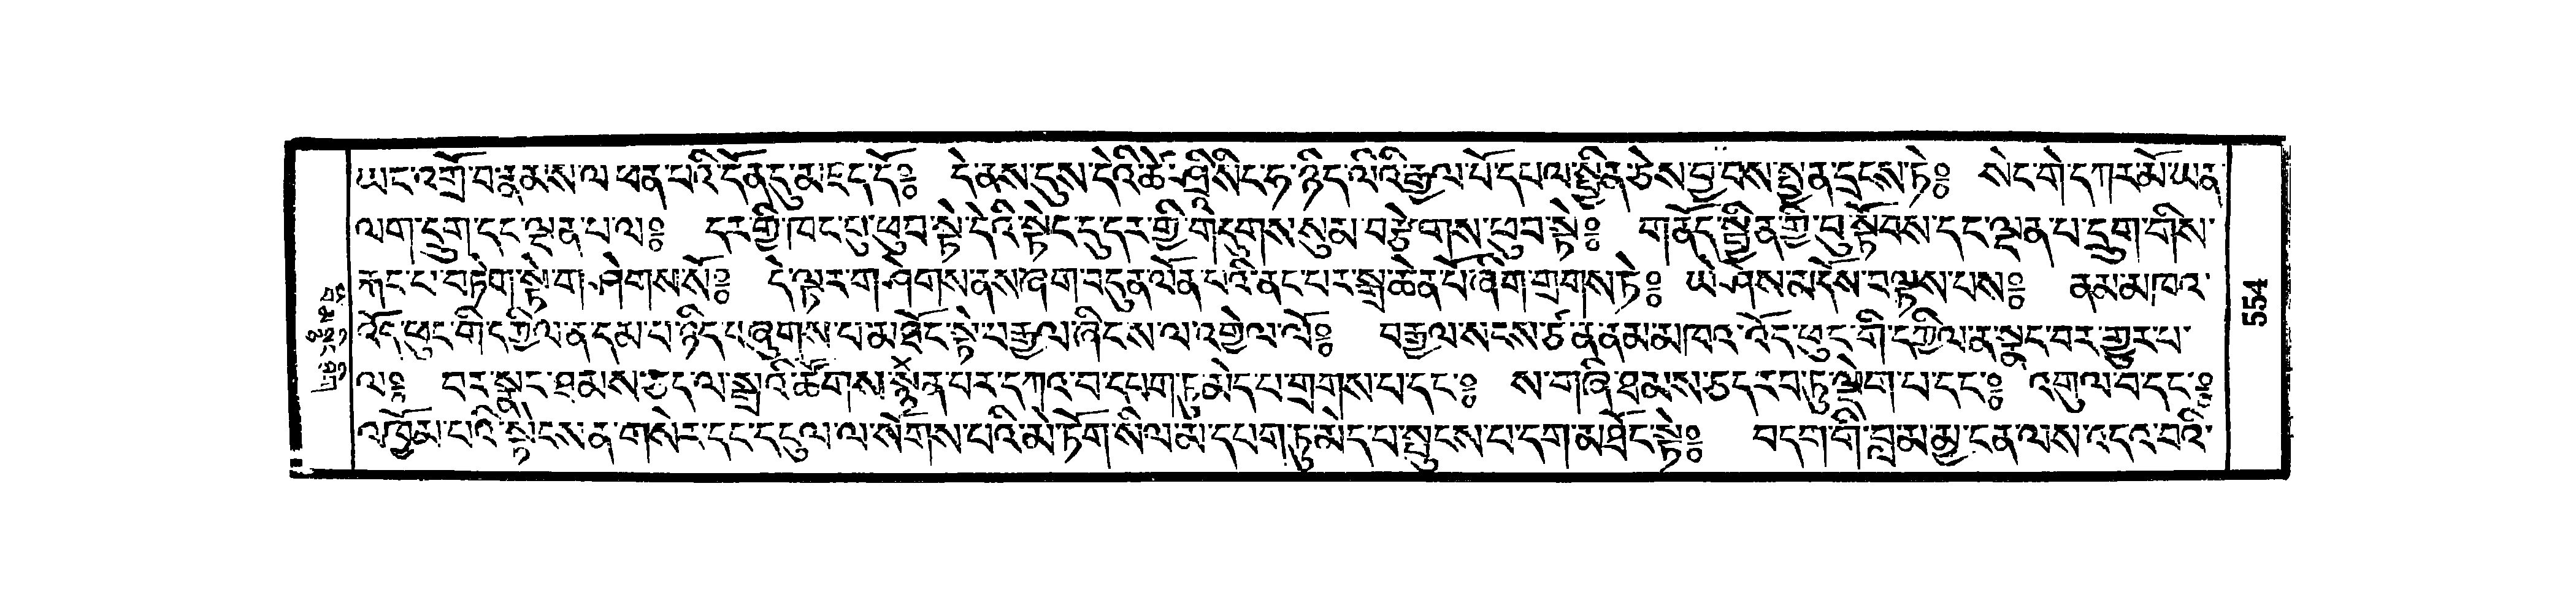 ཡང་འགྲོ་བ་རྣམས་ལ་ཕན་པའི་དོན་དུ་མ་ཛད་དོ༔ དེ་ནས་དུས་དེའི་ཚེ་ཤྲཱི་སིང་ཧ་ཉིད་ལི་འི་རྒྱལ་པོ་དཔལ་སྦྱིན་ཅེས་བྱ་བས་སྤྱན་དྲངས་ཏེ༔ སེང་གེ་དཀར་མོ་ཡན་
ལག་དྲུག་དང་ལྡན་པ་ལ༔ དར་གྱི་ཁང་བུ་ཕུབ་སྟེ་དེའི་སྟེང་དུ་དར་གྱི་གདུགས་སུམ་བརྩེགས་ཕུབ་སྟེ༔ གནོད་སྦྱིན་གྱི་བུ་སྟོབས་དང་ལྡན་པ་དྲུག་གིས་
རྐང་ང་བཏེག་སྟེ་གཤེགས་སོ༔ དེ་ལྟར་གཤེགས་ནས་ཞག་བདུན་ལོན་པའི་ནང་པར་སྒྲ་ཆེན་པོ་ཞིག་གྲགས་ཏེ༔ ཡེ་ཤེས་མདོས་བལྟས་པས༔ ནམ་མཁའ་
འོད་ཕུང་གི་དཀྱིལ་ན་དམ་པ་ཉིད་བཞུགས་པ་མཐོང་སྟེ་བརྒྱལ་ཞིངས་ལ་འགྱེལ་ལོ༔ བརྒྱལ་སངས་ཙ་ན་ནམ་མཁའ་འོད་ཕུང་གི་དཀྱིལ་ན་སྣང་བར་གྱུར་པ་
ལ༔ བར་སྣང་ཐམས་ཅད་ལ་སྒྲའི་ཚོགས་སྨོན་པར་དཀའ་བ་དཔག་ཏུ་མེད་པ་གྲགས་པ་དང་༔ ས་གཞི་ཐམས་ཅད་རབ་ཏུ་ལྡེག་པ་དང་༔ འགུལ་བ་དང་༔
ལྷོམ་པའི་སྟེངས་ན་གསེར་དང་དངུལ་ལ་སོགས་པའི་མེ་ཏོག་སིལ་མ་དཔག་ཏུ་མེད་པ་སྤུངས་པ་དག་མཐོང་སྟེ༔ བདག་གི་བླ་མ་མྱ་ངན་ལས་འདའ་བའི་
554